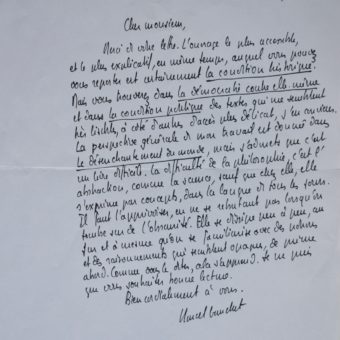 Cher monsieur,
Merci de votre lettre. L'ouvrage le plus accessible,
et le plus explicatif, en même temps, auquel vous pouvez
vous reporter est certainement la condition historique.
Mais vous trouverez dans la démocratie contre elle-même
et dans la condition politique des textes qui me semblent
très lisibles, à côté d'autres d'accès plus délicat, j'en conviens.
La perspective générale de mon travail est donnée dans
le désenchantement du monde, mais j'admets que c'est
un livre difficile. La difficulté de la philosophie, c'est l'
abstraction, comme la science, sauf que chez elle, elle
s'exprime par concepts, dans la langue de tous les jours.
Il faut l'apprivoiser, en ne se rebutant pas lorsqu'on
tombe sur de l'obscurité. Elle se dissipe peu à peu, au
fur et à mesure qu'on se familiarise avec des notions
et des raisonnements qui semblent opaques, de prime
abord. Comme vous le dites, cela s'apprend. Je ne puis
que vous souhaiter bonne lecture.
Bien cordialement à vous.
Marcel Gauchet